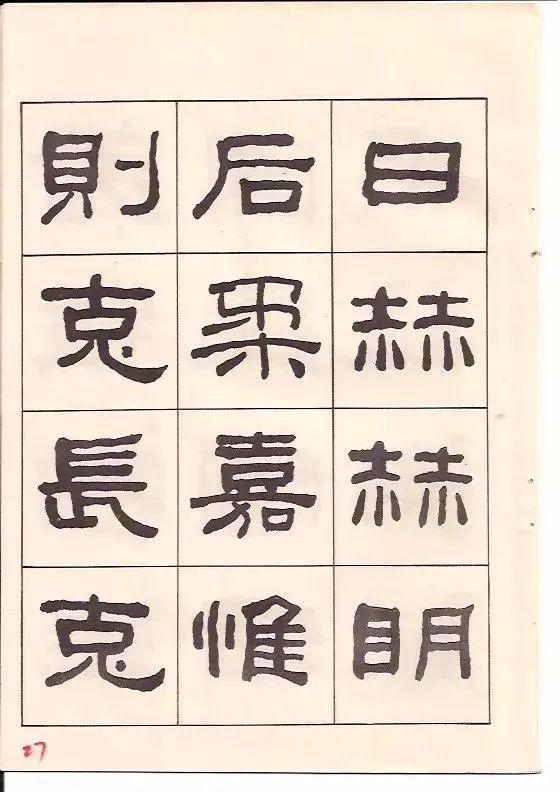 曰赫赫明
后柔嘉惟
則克長克
27